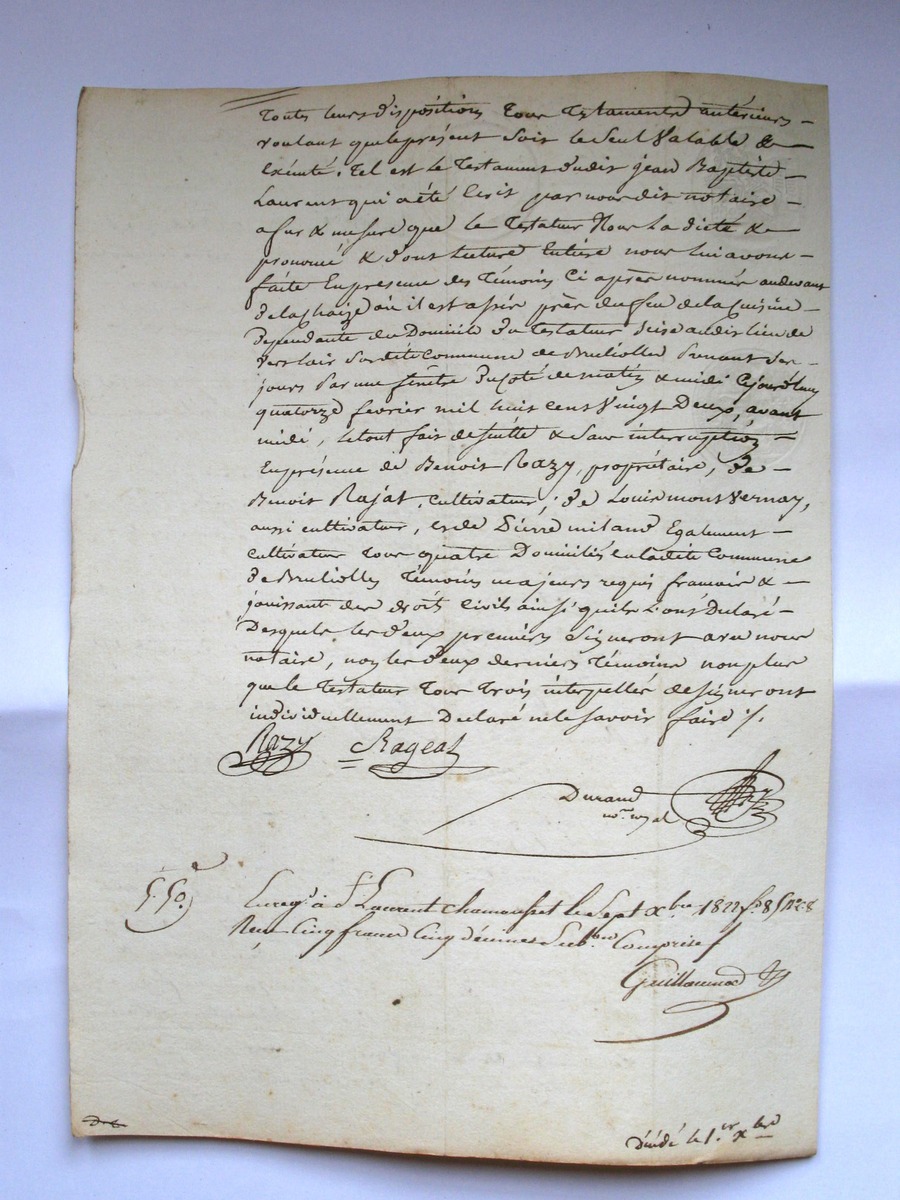 toutes leurs dispositions tous testaments antérieurs
voulant que le présent soit le seul valable &
exécuté. tel est le testament dudit jean Baptiste
Laurent qui a été écrit par nous dit notaire
a fur & mesure que le testateur nous l'a dicté &
prononcé & dont lecture entière nous lui avons
faite en présence des témoins ci après nommés au devant
de la chaize où il est assis près du feu de la cuisine
dépendante du Domicile du testateur scise audit lieu de
susdite Commune de Brullioles prenant ses
jours par une fenêtre du côté de matin & midi cejourd'huy
quatorze fevrier mil huit cent vingt Deux, avant
midi, le tout fait de suitte & sans interruption
En présence de Benoit Razy, propriétaire, de
Benoit Rajat, cultivateur, de Louis montvernay,
aussi cultivateur, et de Pierre milan Egalement
cultivateur tous quatre Domiciliés en ladite Commune
de Brullioles témoins majeurs requis francais &
jouissant des droits civils ainsi qu'ils l'ont Déclaré
Desquels les deux premiers signeront avec nous
notaire, non les deux derniers témoins non plus
que le testateur tous trois interpellés de signer ont
individuellement Déclaré ne le savoir faire ⁒.
Razy Rageat
Durand
nre. ryal
5.50.
Enregé. à St Laurent Chamousset le Sept xbre 1822 fo 85
Reçu Cinq francs Cinq décimes Subon Comprise
Guillaumod
décédé le 1.er xbre